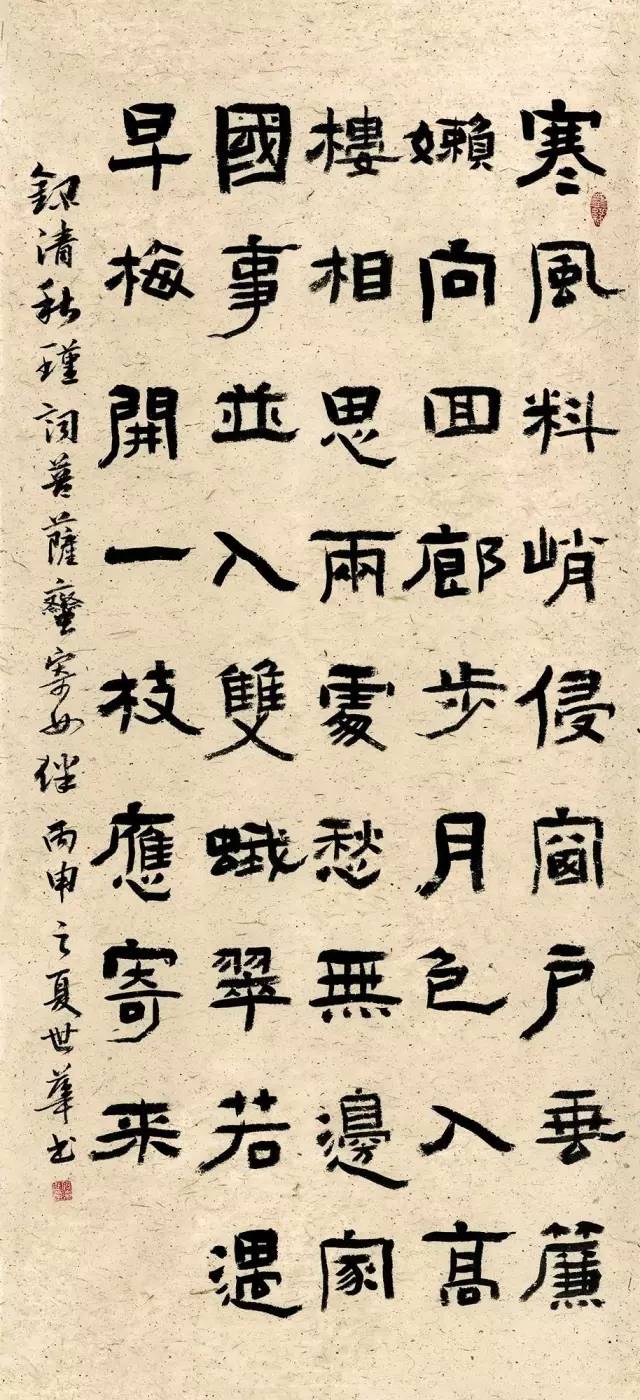 寒風料峭侵窗戶垂簾
嬾向回廊步月色入高
樓相思兩處愁無邊家
國事並入雙蛾翠若遇
早梅開一枝應寄来
錄清秋瑾詞菩薩蠻寄女伴 丙申之夏世華书